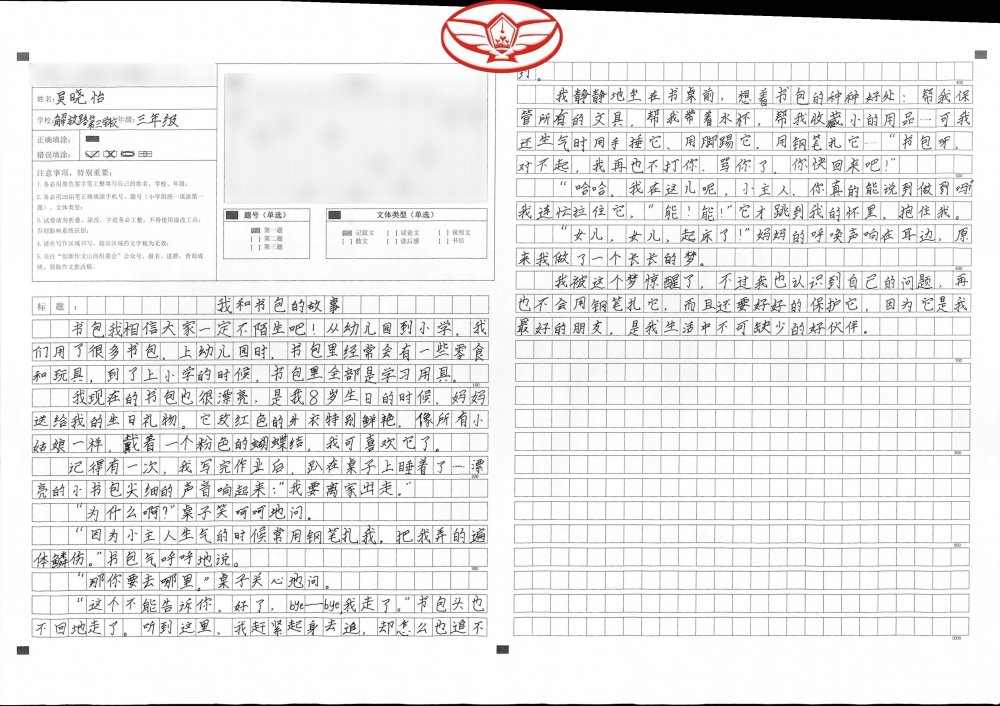 姓名：吴晓怡
学校：解放路第三学校 年级：三年级
正确填涂：
错误填涂：
注意事项，特别重要：
1. 务必用黑色签字笔工整填写自己的姓名、学校、年级；
2. 务必用2B铅笔正确填涂手机号、题号（小学组统一填涂第一题）、文体类型；
3. 试卷请勿折叠、涂改，字迹务必工整，不得使用涂改工具，否则影响系统识别；
4. 请在写作区域书写，超出区域的文字视为无效；
5. 关注“创新作文山西组委会”公众号，报名、进群、查询成绩、领取作文批改稿。
题号（单选）
第一题
[ ] 第二题
[ ] 第三题
文体类型（单选）
记叙文 [ ] 议论文 [ ] 说明文
[ ] 散文 [ ] 读后感 [ ] 书信
标 题： 我和书包的故事
书包我相信大家一定不陌生吧！从幼儿园到小学，我
们用了很多书包，上幼儿园时，书包里经常会有一些零食
和玩具，到了上小学的时候，书包里全部是学习用具。
100
我现在的书包也很漂亮，是我8岁生日的时候，妈妈
送给我的生日礼物。它玫红色的外衣特别鲜艳，像所有小
姑娘一样，戴着一个粉色的蝴蝶结，我可喜欢它了。
记得有一次，我写完作业后，趴在桌子上睡着了…漂
200
亮的小书包尖细的声音响起来：“我要离家出走。”
“为什么啊？”桌子笑呵呵地问。
“因为小主人生气的时候常用钢笔扎我，把我弄的遍
体鳞伤。”书包气呼呼地说。
300
“那你要去哪里。”桌子关心地问。
“这个不能告诉你，好了，bye—bye，我走了。”书包头也
不回地走了。听到这里，我赶紧起身去追，却怎么也追不
到。
400
我静静地坐在书桌前，想着书包的种种好处：帮我保
管所有的文具，帮我带着水杯，帮我收藏小的用品…可我
还生气时用手捶它、用脚踢它、用钢笔扎它…“书包呀，
对不起，我再也不打你、骂你了，你快回来吧！”
500
“哈哈，我在这儿呢，小主人，你真的能说到做到吗？”
我连忙拉住它，“能！能！”它才跳到我的怀里，抱住我。
“女儿，女儿，起床了！”妈妈的呼唤声响在耳边，原
来我做了一个长长的梦。
600
我被这个梦惊醒了，不过我也认识到自己的问题，再
也不会用钢笔扎它，而且还要好好的保护它，因为它是我
最好的朋友，是我生活中不可缺少的好伙伴。
700
800
900
1000